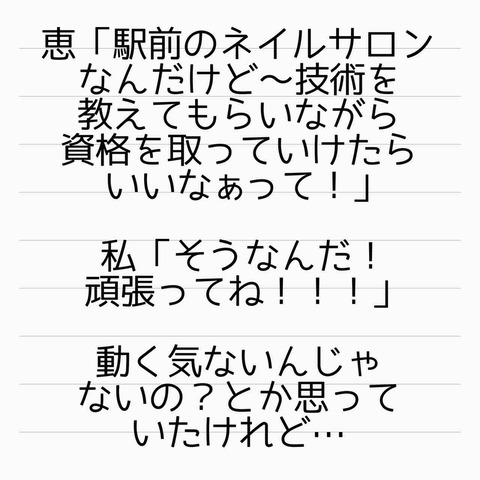 恵「駅前のネイルサロン
なんだけど〜技術を
教えてもらいながら
資格を取っていけたら
いいなぁって！」
私「そうなんだ！
頑張ってね！！！」
動く気ないんじゃ
ないの？とか思って
いたけれど…